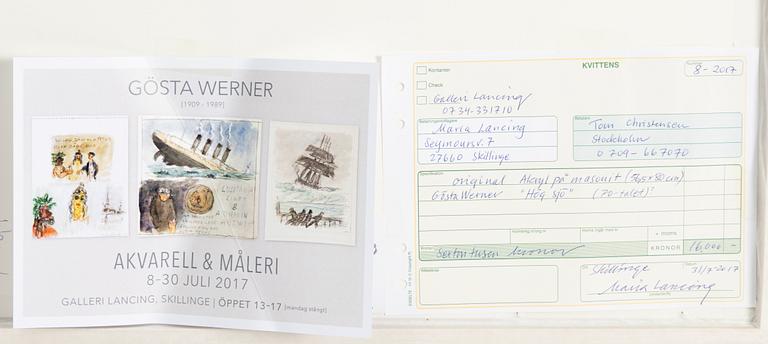 GÖSTA WERNER
(1909 - 1989)
AKVARELL & MÅLERI
8-30 JULI 2017
GALLERI LANCING, SKILLINGE | ÖPPET 13-17 (måndag stängt)
KVITTENS
8-2017
Kontanter
Check
Galleri Lancing
0734-331710
Maria Lancing
Seymoursv. 7
27660 Skillinge
Tom Christensen
Stockholm
0709-667070
Specifikation
original Akryl på masonit (56,5x80 cm)
Gösta Werner "Hög sjö" (70-talet)
+ moms
Sexton tusen kronor
KRONOR
16,000 -
Skillinge
31/7-2017
Maria Lancing